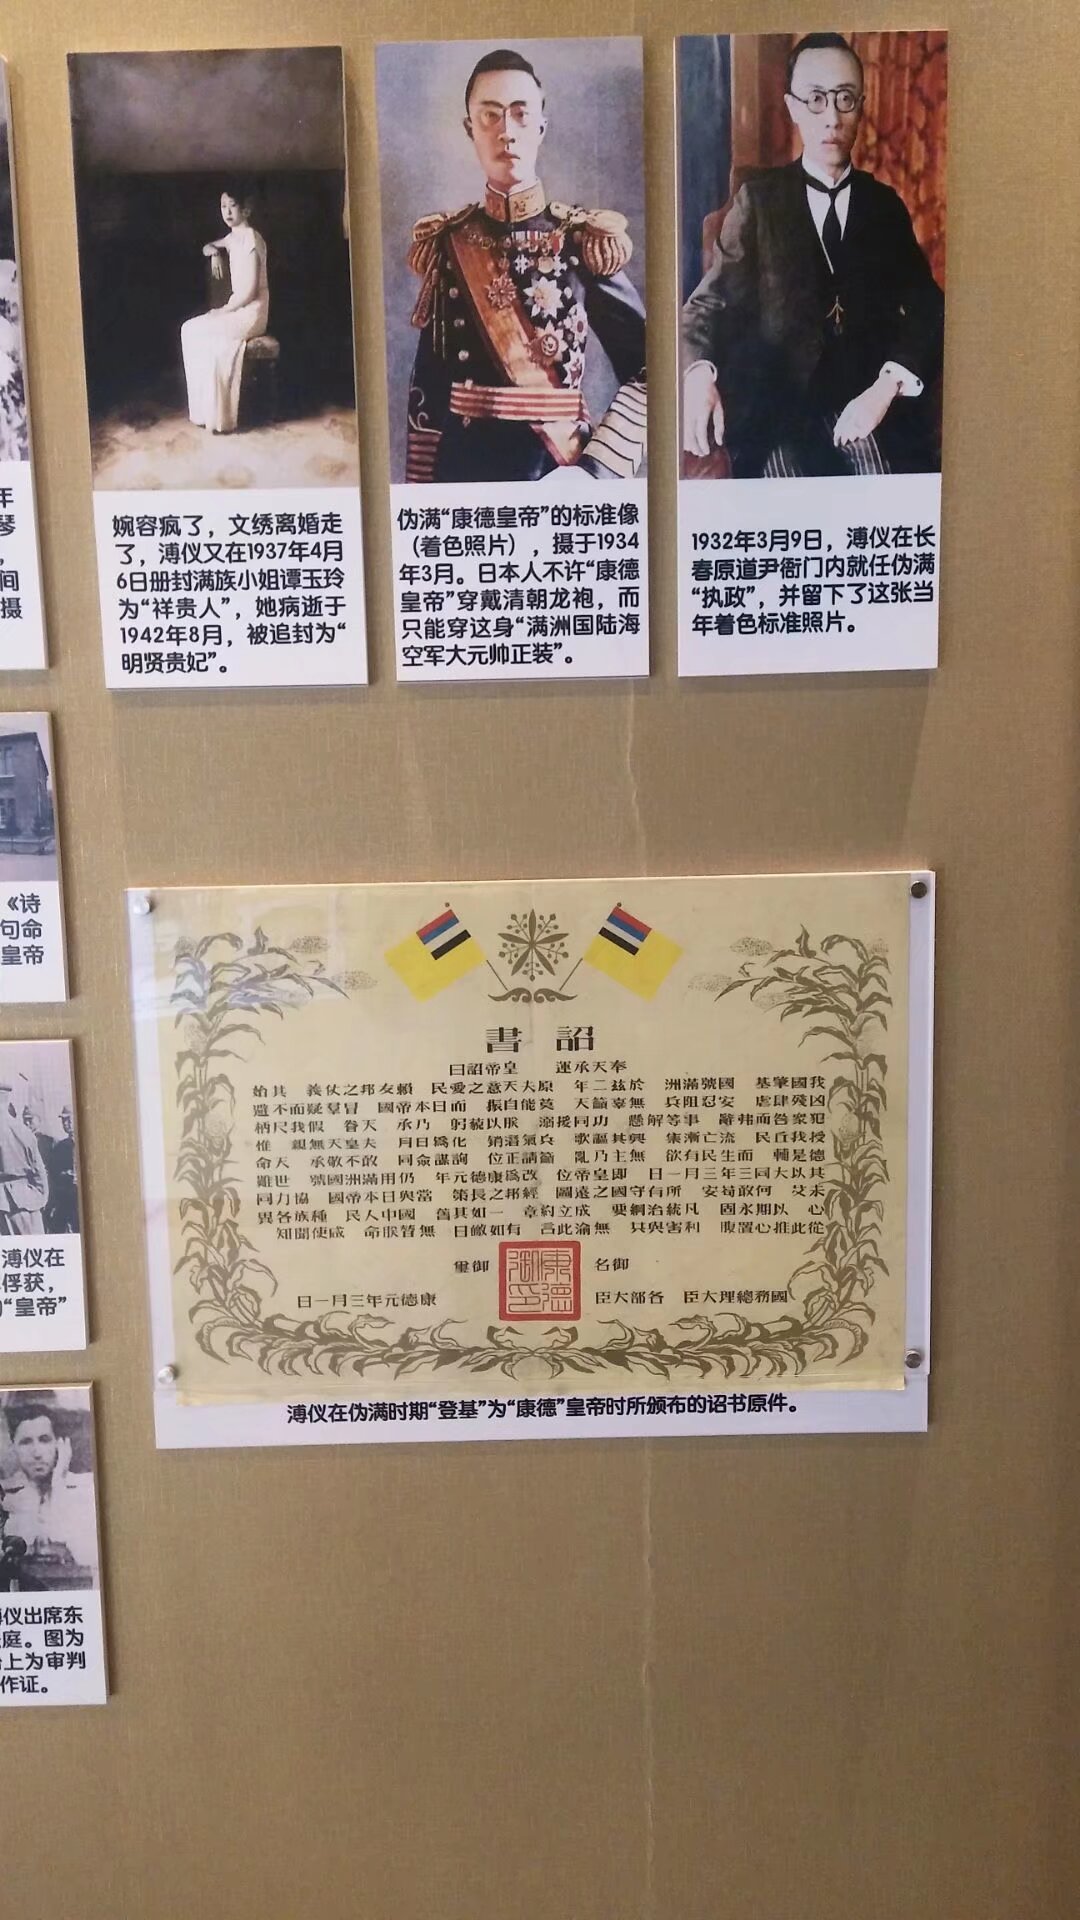 年
琴
，
间
摄
婉容疯了，文绣离婚走
了，溥仪又在1937年4月
6日册封满族小姐谭玉玲
为“祥贵人”，她病逝于
1942年8月，被追封为“
明贤贵妃”。
伪满“康德皇帝”的标准像
（着色照片），摄于1934
年3月。日本人不许“康德
皇帝”穿戴清朝龙袍，而
只能穿这身“满洲国陆海
空军大元帅正装”。
1932年3月9日，溥仪在长
春原道尹衙门内就任伪满
“执政”，并留下了这张当
年着色标准照片。
《诗
句命
皇帝
溥仪在
俘获，
“皇帝”
仪出席东
庭。图为
上为审判
作证。
詔書
奉天承運 皇帝詔曰
我國肇基 國號滿洲 於茲二年 原夫天意之愛民 賴友邦之仗義 其始
凶殘肆虐 安忍阻兵 無辜籲天 莫能自振 而日本帝國 冒羣疑而不避
犯衆咎而弗辭 事等解懸 功同援溺 朕以藐躬 乃承 天眷 假我尺柄
授我丘民 流亡漸集 興其謳歌 兵氣潛銷 化爲日月 夫皇天無親 惟
德是輔 而生民有欲 無主乃亂 籲請正位 詢謀僉同 不敢敬承 天命
其以大同三年三月一日 即皇帝位 改爲康德元年 仍用滿洲國號 世難
未艾 何敢苟安 所有守國之遠圖 經邦之長策 當與日本帝國 協力同
心 以期永固 凡統治綱要 成立約章 一如其舊 國中人民 種族各異
從此推心置腹 利害與共 無渝此言 有如皦日 無替朕命 咸使聞知
御名 康德御印 御璽
國務總理大臣 各部大臣 康德元年三月一日
溥仪在伪满时期“登基”为“康德”皇帝时所颁布的诏书原件。